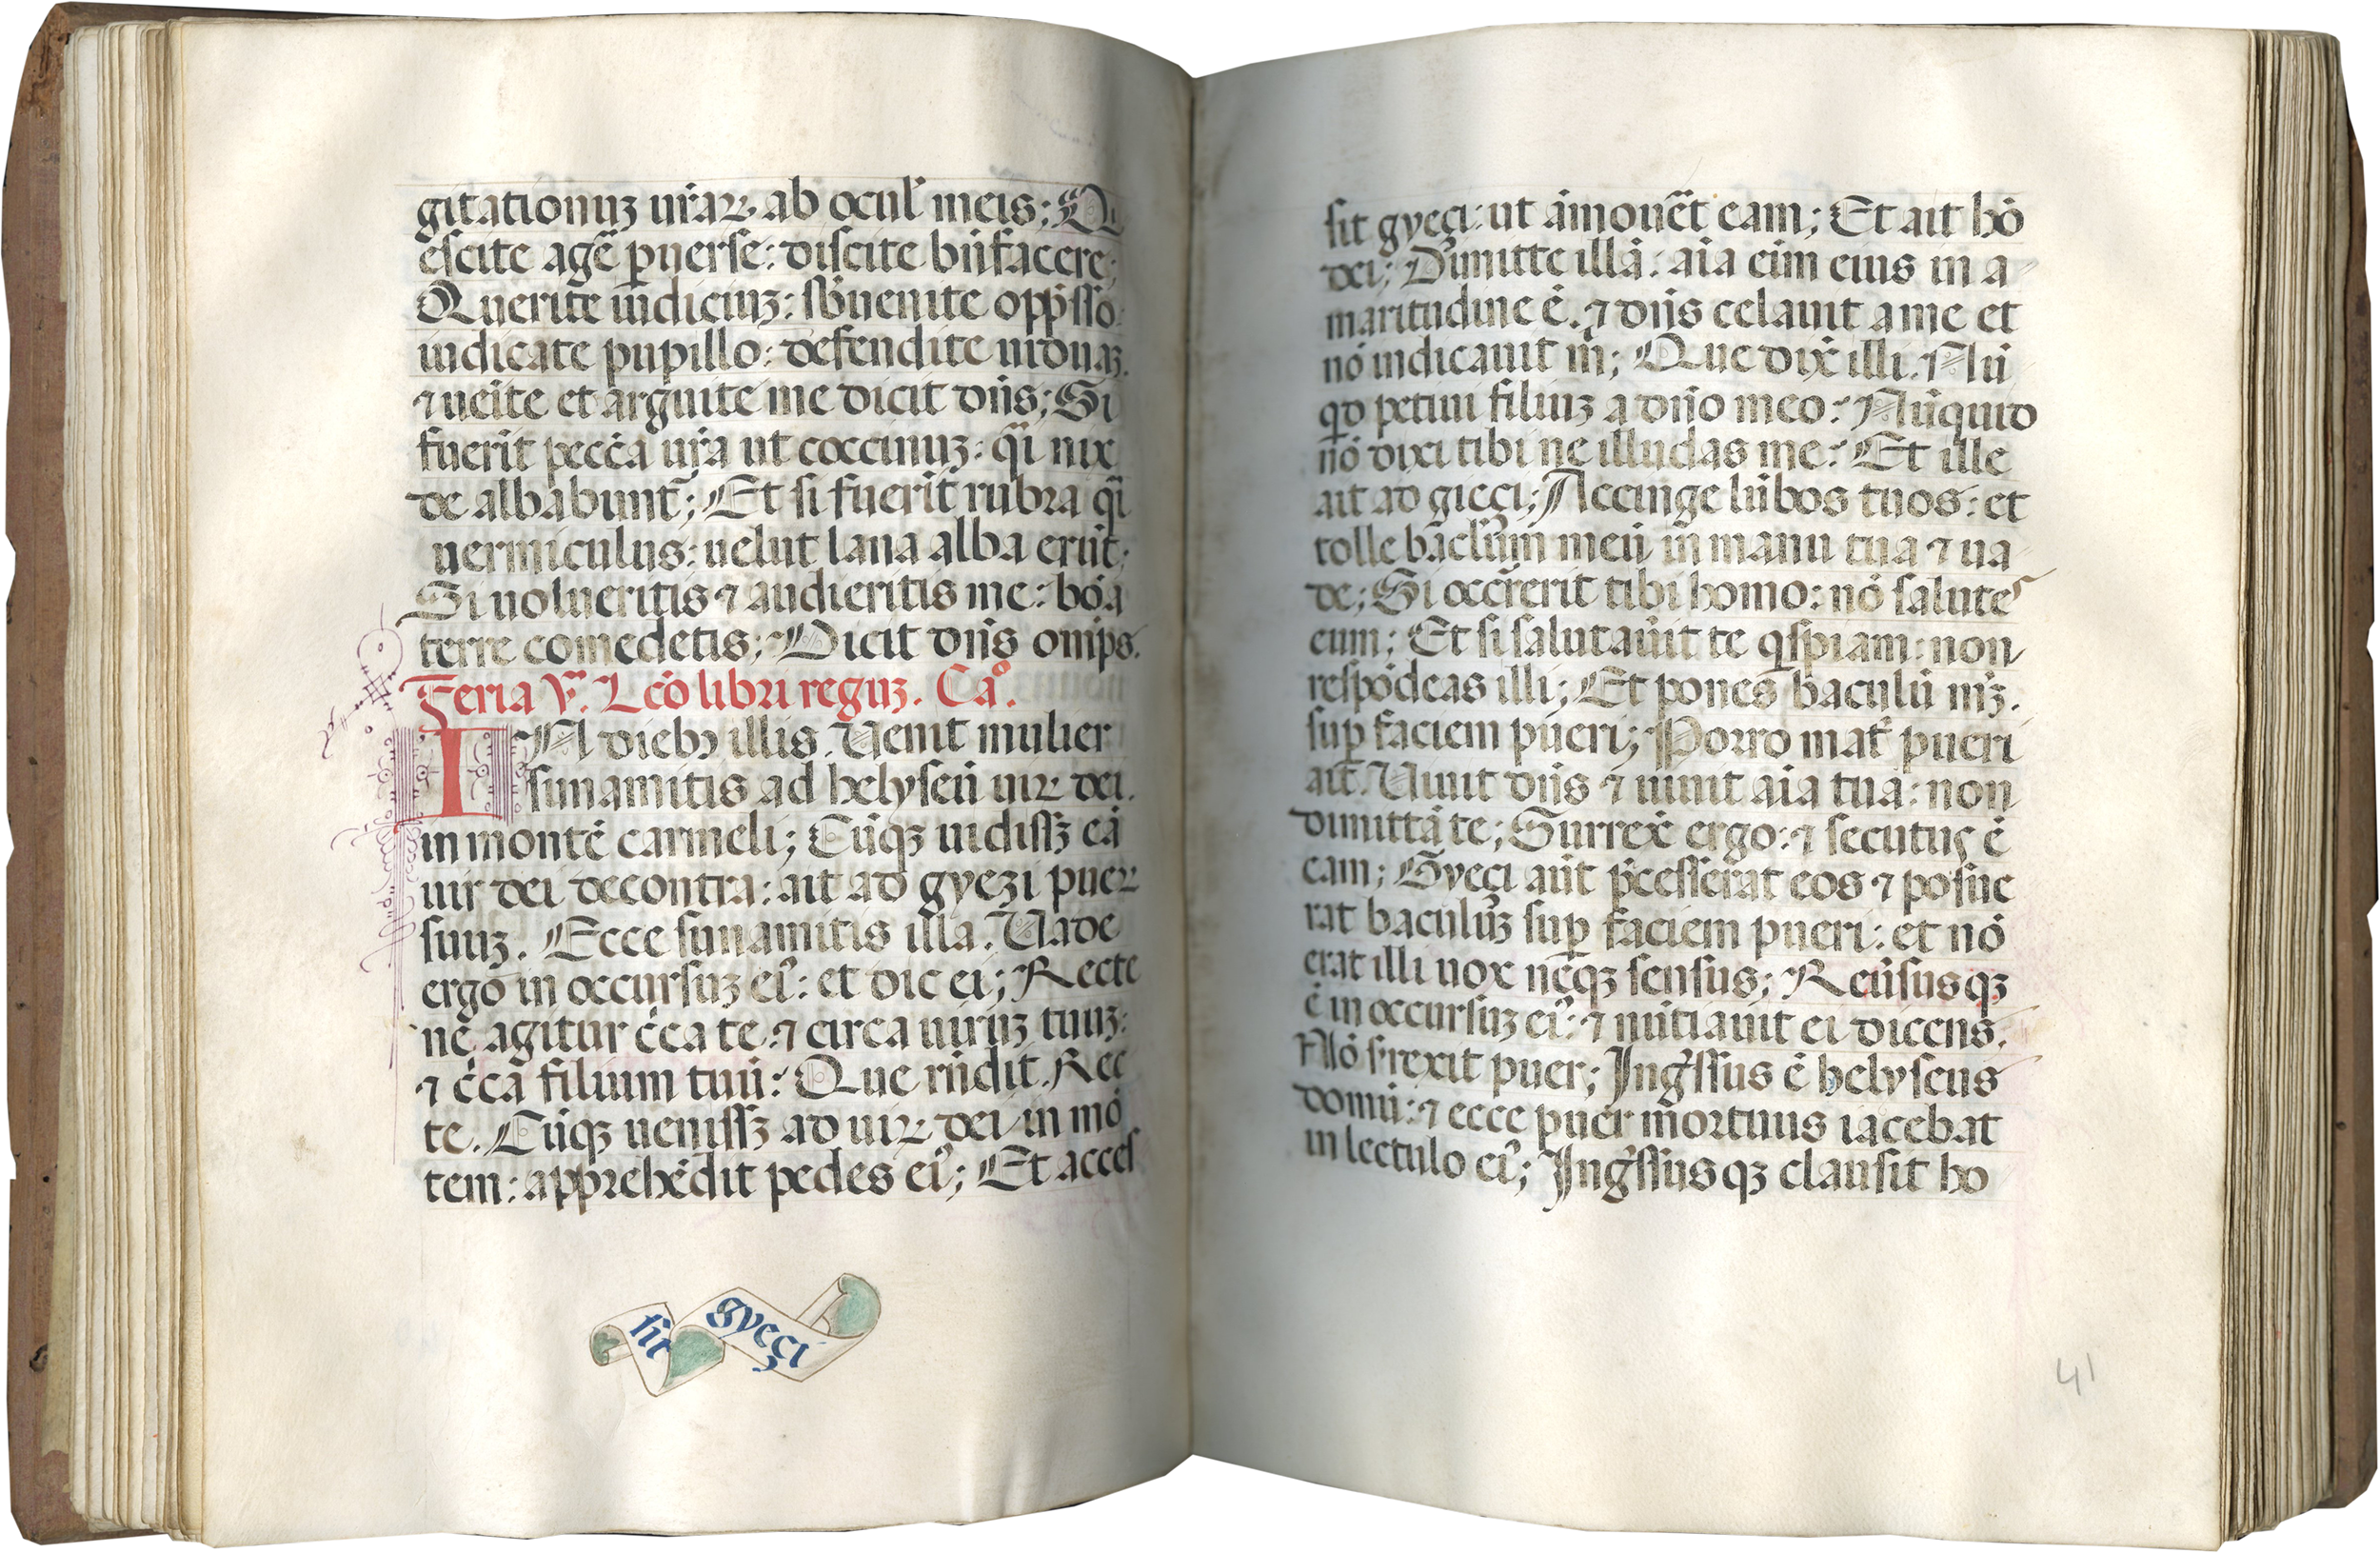 gitationuꝫ ur̄aꝝ ab ocul' meis; Qi
escite ager̄ ꝑuerse: discite bn̄facere;
Querite iudiciuꝫ: sb̄uenite opp̄sso:
iudicate pupillo: defendite uiduaꝫ.
⁊ uēite et arguite me dicit dn̄s; Si
fuerīt pecc̄a ur̄a ut coccinuꝫ: q̄i nix
de albabunt̄; Et si fuerīt rubra q̄i
uermiculus: uelut lana alba erūt;
Si uolueritis ⁊ audieritis me: boā
terre comedetis; Dicit dn̄s om̄ps.
Feria v.ª Lc̄o libri reguꝫ. Caº.
IN diebꝰ illis. Uenit mulier
sunamitis ad helyseū uiꝝ dei.
in montē carmeli; Cūqꝫ uidissꝫ eā
uir dei decontra: ait ad gyezi pueꝝ
suuꝫ. Ecce sunamitis illa. Uade
ergo in occursuꝫ eiꝰ: et dic ei; Recte
ne agitur c̄ca te ⁊ circa uiruꝫ tuuꝫ:
⁊ c̄ca filium tuū: Que rn̄dit. Rec
te. Cūqꝫ uenissꝫ ad uiꝝ dei in mō
tem: apprehēdit pedes eiꝰ; Et acces
sit gyeçi
sit gyeçi: ut āmouēt eam; Et ait hō
dei; Dimitte illā: aīa eīm eius in a
maritudine ē. ⁊ dn̄s celauit a me et
nō indicauit m̄; Que dix̄ illi. Nū
qd petiui filiuꝫ a dn̄o meo: Nūquid
nō dixi tibi ne illudas me: Et ille
ait ad gieçi; Accinge lūbos tuos: et
tolle bacl'um meū in manu tua ⁊ ua
de; Si occr̄rerit tibi homo: nō salutes
eum; Et si salutaūit te qspiam: non
respōdeas illi; Et pones baculū mꝫ.
suꝑ faciem pueri; Porro mat̄ pueri
ait. Uiuit dn̄s ⁊ uiuit aīa tua: non
dimittā te; Surrex̄ ergo: ⁊ secutus ē
eam; Gyeçi aūt p̄cesserat eos ⁊ posue
rat baculuꝫ suꝑ faciem pueri: et nō
erat illi uox neqꝫ sensus; Reūsusqꝫ
ē in occursuꝫ eiꝰ: ⁊ nūtiauit ei dicens.
Nō s'rexit puer; Ingssus ē helyseus
domū: ⁊ ecce puer mortuus iacebat
in lectulo eiꝰ; Ingssusqꝫ clausit ho
41